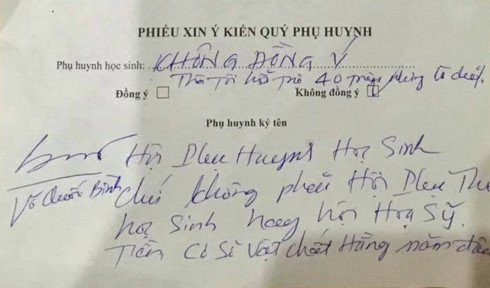 PHIẾU XIN Ý KIẾN QUÝ PHỤ HUYNH
Phụ huynh học sinh: KHÔNG ĐỒNG Ý
Thà Tôi hỗ trợ 40
Đồng ý Không đồng ý
Phụ huynh ký tên
Hội Phụ Huynh Học Sinh
Võ Quốc Bình
chứ không phải Hội Phụ Thu
học sinh hay hội Họa Sỹ.
Tiền Cơ Sở Vật chất Hằng năm đâu